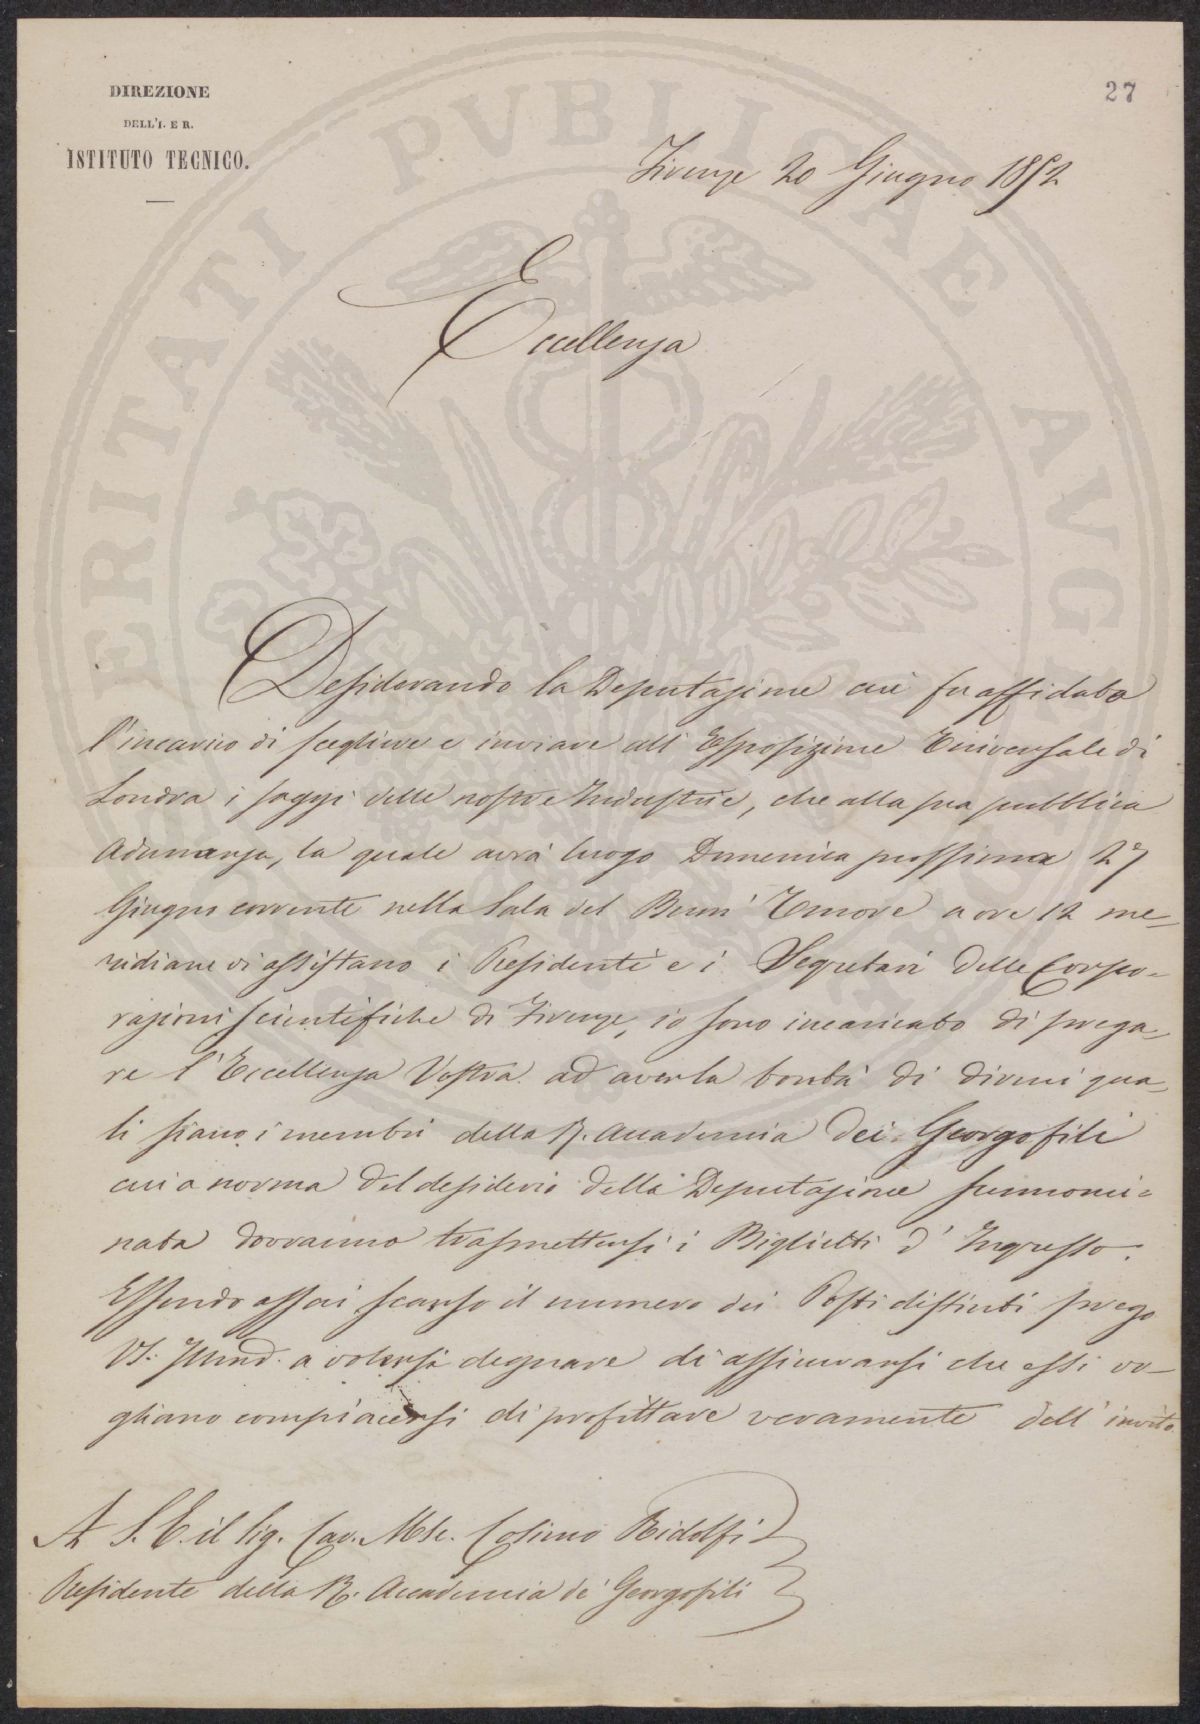 DIREZIONE
DELL'I. E R.
ISTITUTO TECNICO.
27
Firenze 20 Giugno 1852
Eccellenza
Desiderando la Deputazione cui fu affidato
l'incarico di scegliere e inviare all'Esposizione Universale di
Londra i saggi delle nostre Industrie, che alla sua pubblica
Adunanza, la quale avrà luogo Domenica prossima 27
Giugno corrente nella Sala del Buon'Umore a ore 12 me-
ridiane vi assistano i Presidenti e i Segretari delle Corpo-
razioni scientifiche di Firenze, io sono incaricato di prega-
re l'Eccellenza Vostra ad aver la bontà di dirmi qua-
li siano i membri della R. Accademia dei Georgofili
cui a norma del desiderio della Deputazione summomi-
nata dovranno trasmettersi i Biglietti d'Ingresso.
Essendo assai scarso il numero dei Posti distinti prego
VS. Illma. a volersi degnare di assicurarsi che essi vo-
gliano compiacersi di profittare veramente dell'invito.
A S. E. il Sig. Cav. Mse. Cosimo Ridolfi
Presidente della R. Accademia de' Georgofili
PUBLICAE